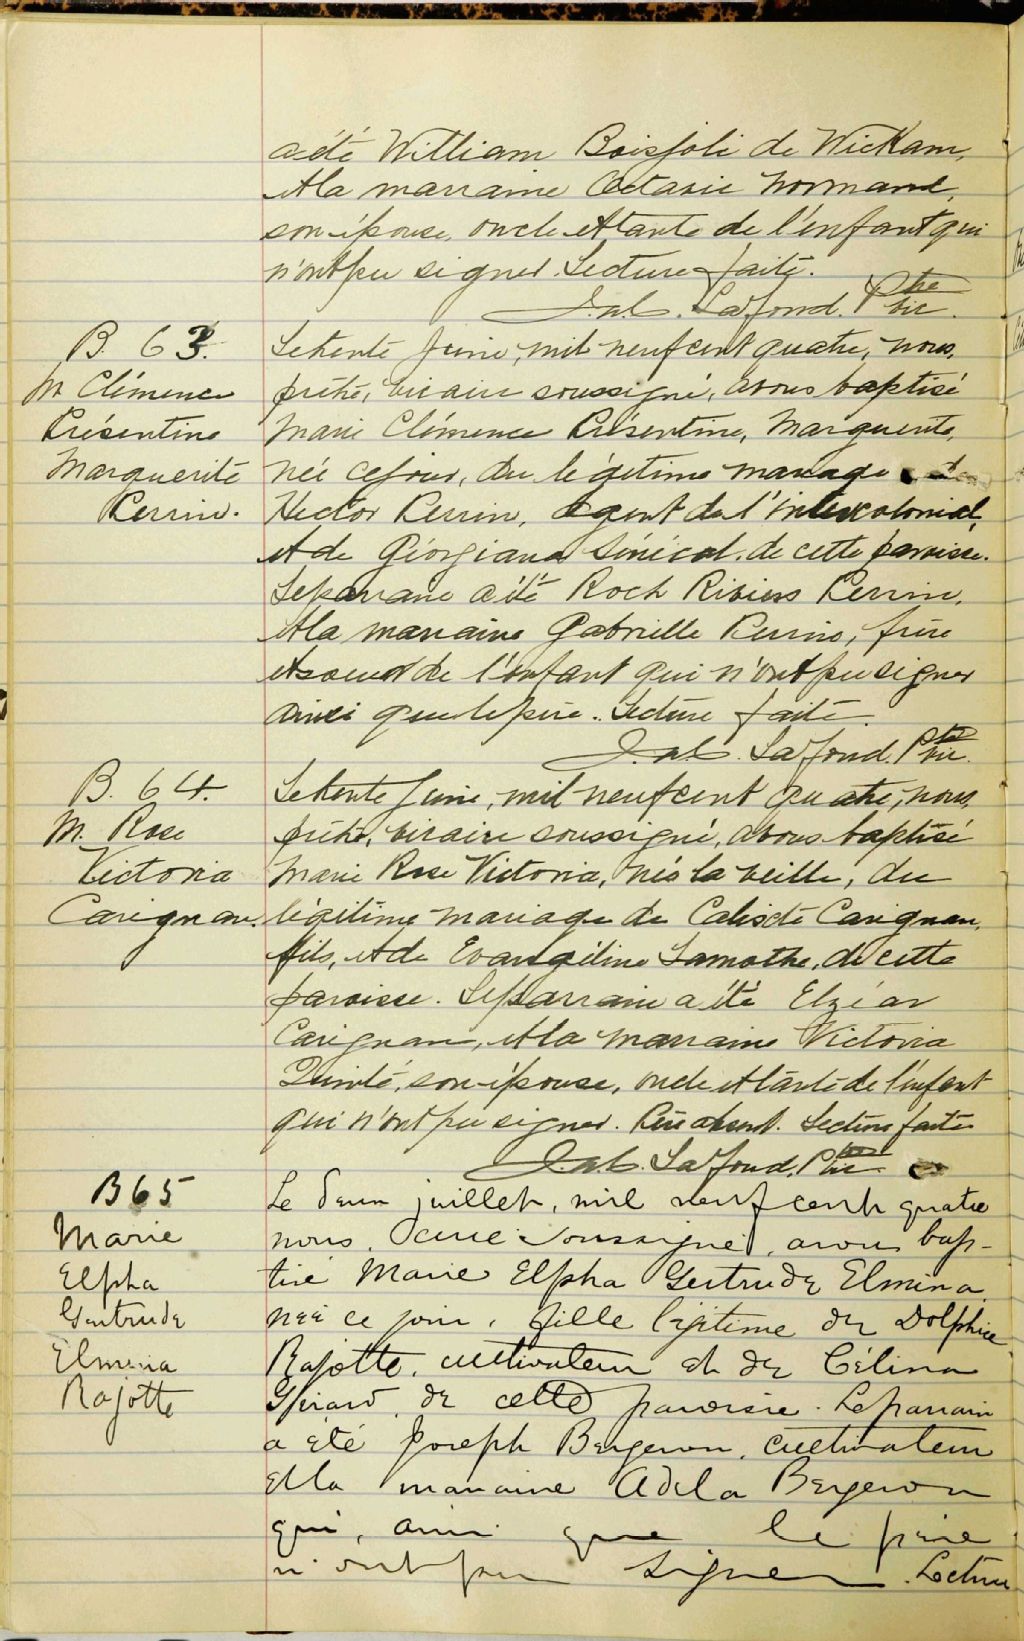 a été William Boisjoli de Wickam,
et la marraine Octavie Normand,
son épouse, oncle et tante de l'enfant qui
n'ont pu signer. Lecture faite.
J. Lafond. Ptre vic.
B. 63.
M. Clémence
Présentine
Marguerite
Perrin.
Le trente Juin, mil neuf cent quatre, nous,
prêtre, vicaire soussigné, avons baptisé
Marie Clémence Présentine, Marguerite,
née ce jour, du légitime mariage de
Hector Perrin, agent de l'intercolonial,
et de Géorgiana Sénécal, de cette paroisse.
Le parrain a été Roch Perrin,
et la marraine Gabrielle Perrin, frère
et soeur de l'enfant qui n'ont pu signer
ainsi que le père. Lecture faite.
J. Lafond. Ptre vic.
B. 64.
M. Rose
Victoria
Carignan.
Le trente Juin, mil neuf cent quatre, nous,
prêtre, vicaire soussigné, avons baptisé
Marie Rose Victoria, née la veille, du
légitime mariage de Calixte Carignan,
fils, et de Evangéline Lamothe, de cette
paroisse. Le parrain a été Elzéar
Carignan, et la marraine Victoria
son épouse, oncle et tante de l'enfant
qui n'ont pu signer. Père absent. Lecture faite
J. Lafond. Ptre vic.
B 65
Marie
Elpha
Gertrude
Elmina
Rajotte
Le deux juillet, mil neuf cent quatre
nous, curé soussigné, avons bap-
tisé Marie Elpha Gertrude Elmina
née ce jour, fille légitime de Dolphice
Rajotte, cultivateur et de Célina
Girard, de cette paroisse. Le parrain
a été Joseph Bergeron, cultivateur
et la marraine Adela Bergeron
qui, ainsi que le père
n'ont pu signer. Lecture